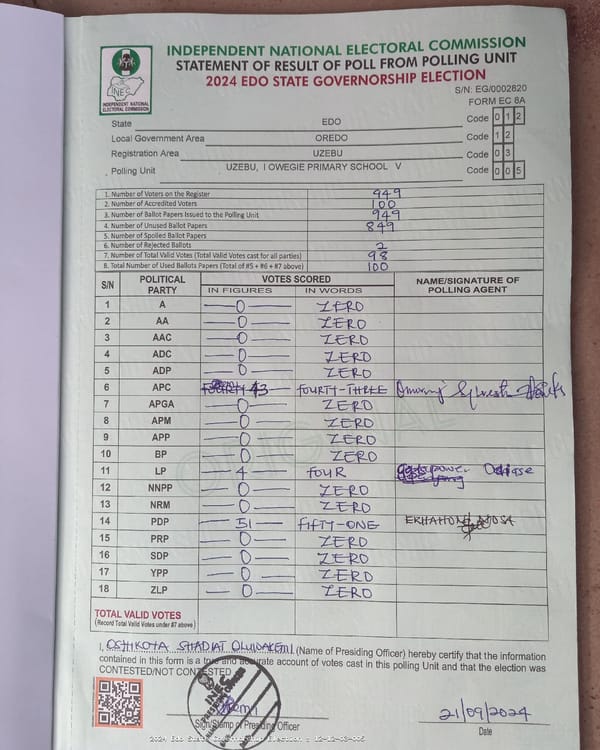 INDEPENDENT NATIONAL ELECTORAL COMMISSION
STATEMENT OF RESULT OF POLL FROM POLLING UNIT
2024 EDO STATE GOVERNORSHIP ELECTION
INEC
INDEPENDENT NATIONAL
ELECTORAL COMMISSION
S/N: EG/0002820
FORM EC 8A
State EDO Code 0 1 2
Local Government Area OREDO Code 1 2
Registration Area UZEBU Code 0 3
Polling Unit UZEBU, I OWEGIE PRIMARY SCHOOL V Code 0 0 5
1. Number of Voters on the Register 949
2. Number of Accredited Voters 100
3. Number of Ballot Papers Issued to the Polling Unit 949
4. Number of Unused Ballot Papers 849
5. Number of Spoiled Ballot Papers
6. Number of Rejected Ballots 2
7. Number of Total Valid Votes (Total Valid Votes cast for all parties) 98
8. Total Number of Used Ballots Papers (Total of #5 + #6 + #7 above) 100
S/N POLITICAL PARTY VOTES SCORED NAME/SIGNATURE OF POLLING AGENT
IN FIGURES IN WORDS
1 A 0 ZERO
2 AA 0 ZERO
3 AAC 0 ZERO
4 ADC 0 ZERO
5 ADP 0 ZERO
6 APC 43 FOURTY-THREE
7 APGA 0 ZERO
8 APM 0 ZERO
9 APP 0 ZERO
10 BP 0 ZERO
11 LP 4 FOUR Godspower
12 NNPP 0 ZERO
13 NRM 0 ZERO
14 PDP 51 FIFTY-ONE
15 PRP 0 ZERO
16 SDP 0 ZERO
17 YPP 0 ZERO
18 ZLP 0 ZERO
TOTAL VALID VOTES
(Record Total Valid Votes under #7 above)
I, OSHIKOYA SHADIAT OLUWAKEMI (Name of Presiding Officer) hereby certify that the information
contained in this form is a true and accurate account of votes cast in this polling Unit and that the election was
CONTESTED/NOT CONTESTED
Sign/Stamp of Presiding Officer
21/09/2024
Date
2024 Edo State Governorship Election : 12-12-03-005